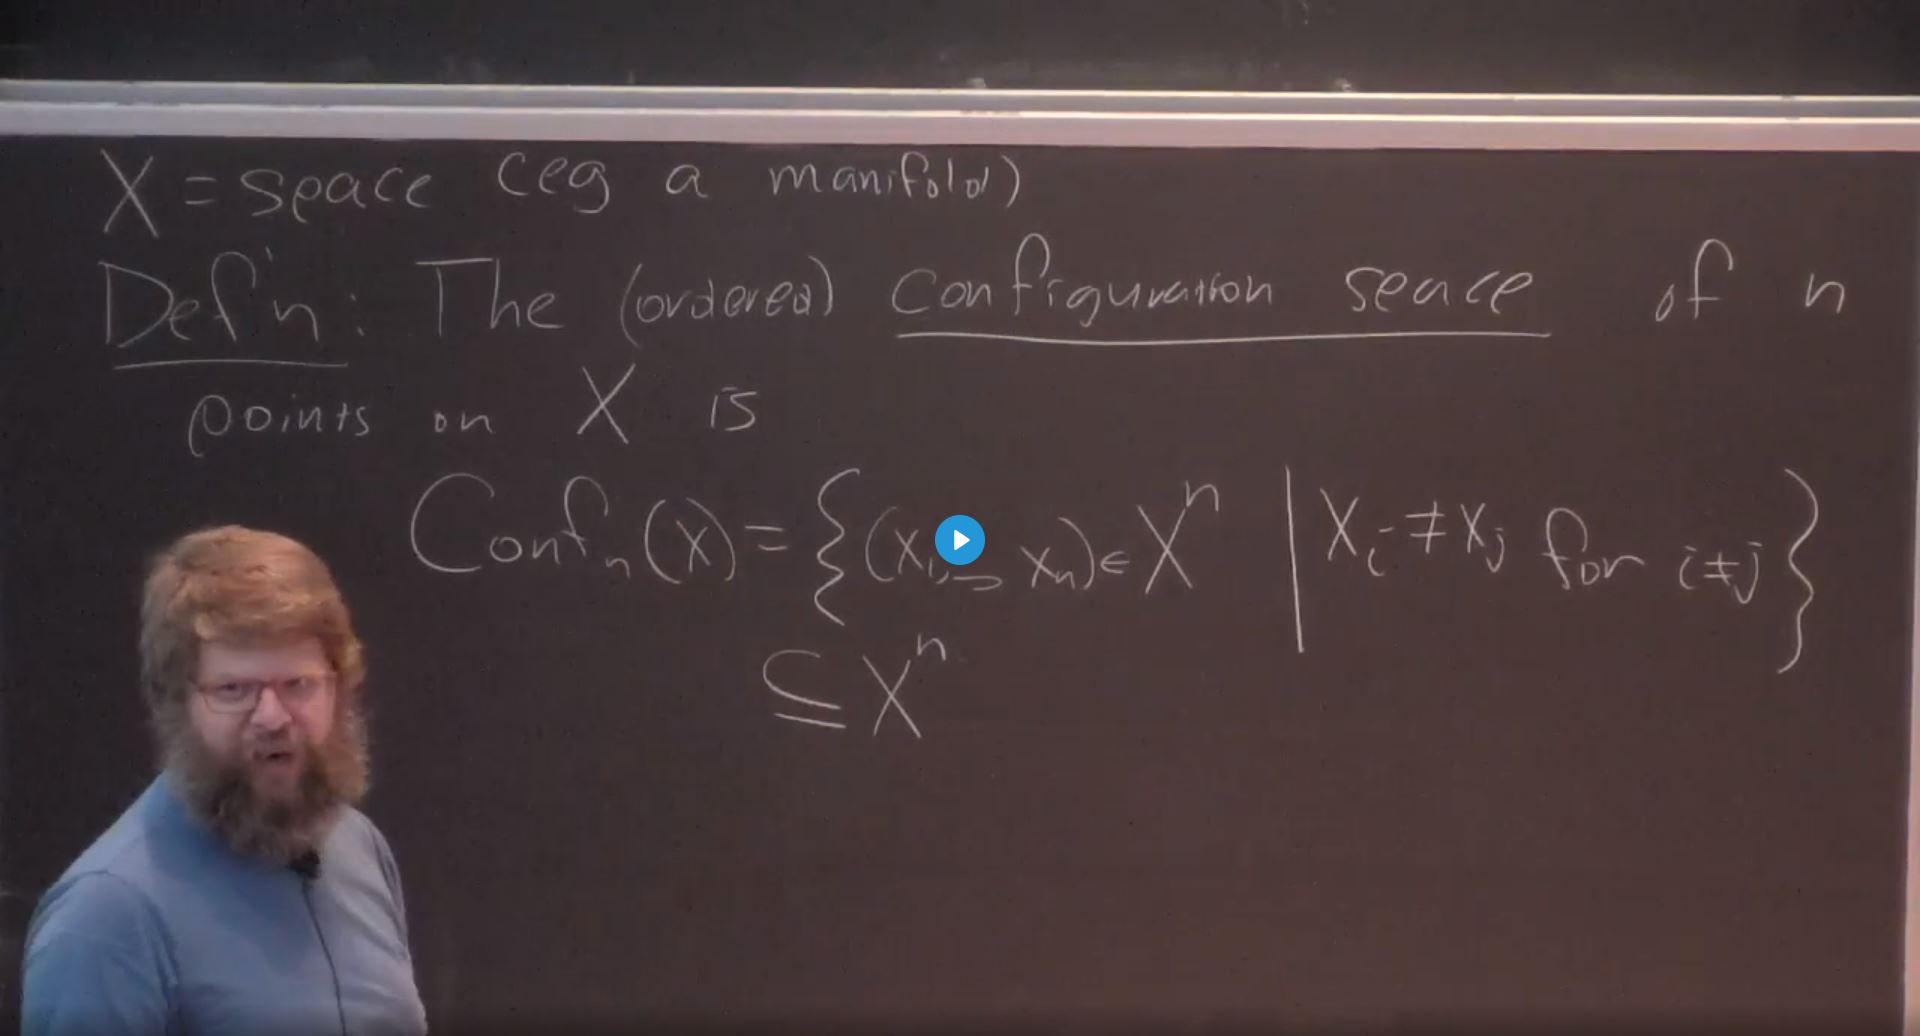 X = space (eg a manifold)
Def'n: The (ordered) configuration space of n
points on X is
Conf_n(X) = {(x_1, ..., x_n) ∈ X^n | x_i ≠ x_j for i ≠ j}
⊆ X^n